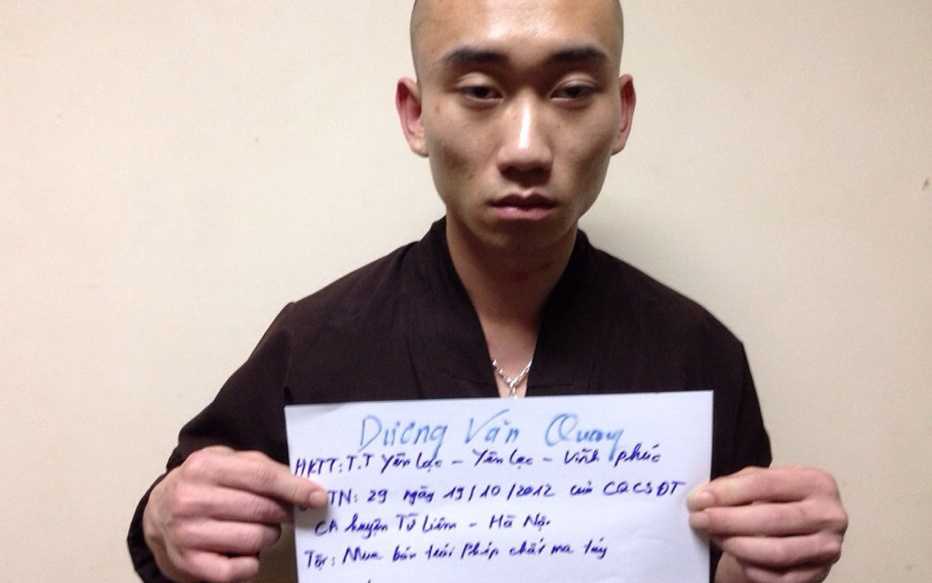 Dương Văn Quang
HKTT: T.T Yên Lạc - Yên Lạc - Vĩnh phúc
TN: 29 ngày 19/10/2012 của CQCSĐT
CA huyện Từ Liêm - Hà Nội.
Tội: Mua bán trái Phép chất ma túy